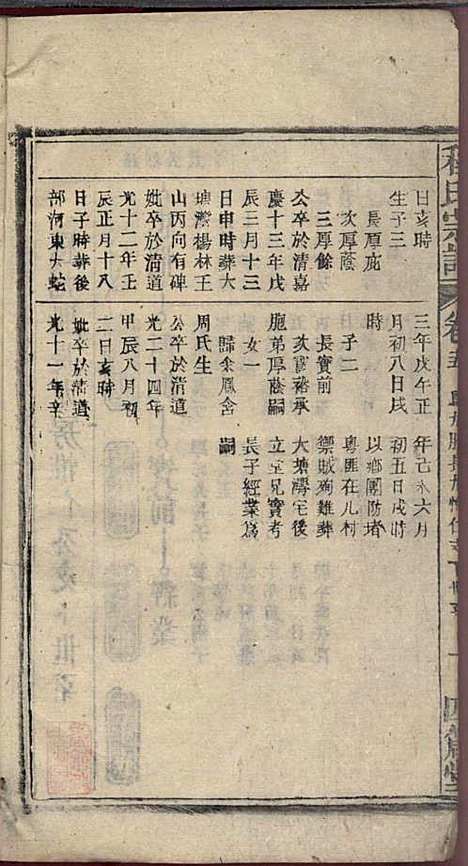 程氏宗譜 卷
日亥時
生子三
長厚庇
次厚蔭
三厚餘
公卒於清嘉
慶十三年戊
辰三月十三
日申時葬大
塘灣楊林王
山丙向有碑
妣卒於清道
光十二年壬
辰正月十八
日子時葬後
部河東大蛇
三年戊午正
月初八日戌
時
日子二
長實前
次實裕承
胞弟厚蔭嗣
女一
歸余鳳舍
周氏生
公卒於清道
光二十四年
甲辰八月初
二日亥時
妣卒於清道
光十一年辛
年己未六月
初五日戌時
以鄉團防堵
粵匪在几村
禦賊殉難葬
大塘灣宅後
立堂兄實考
長子經業爲
嗣